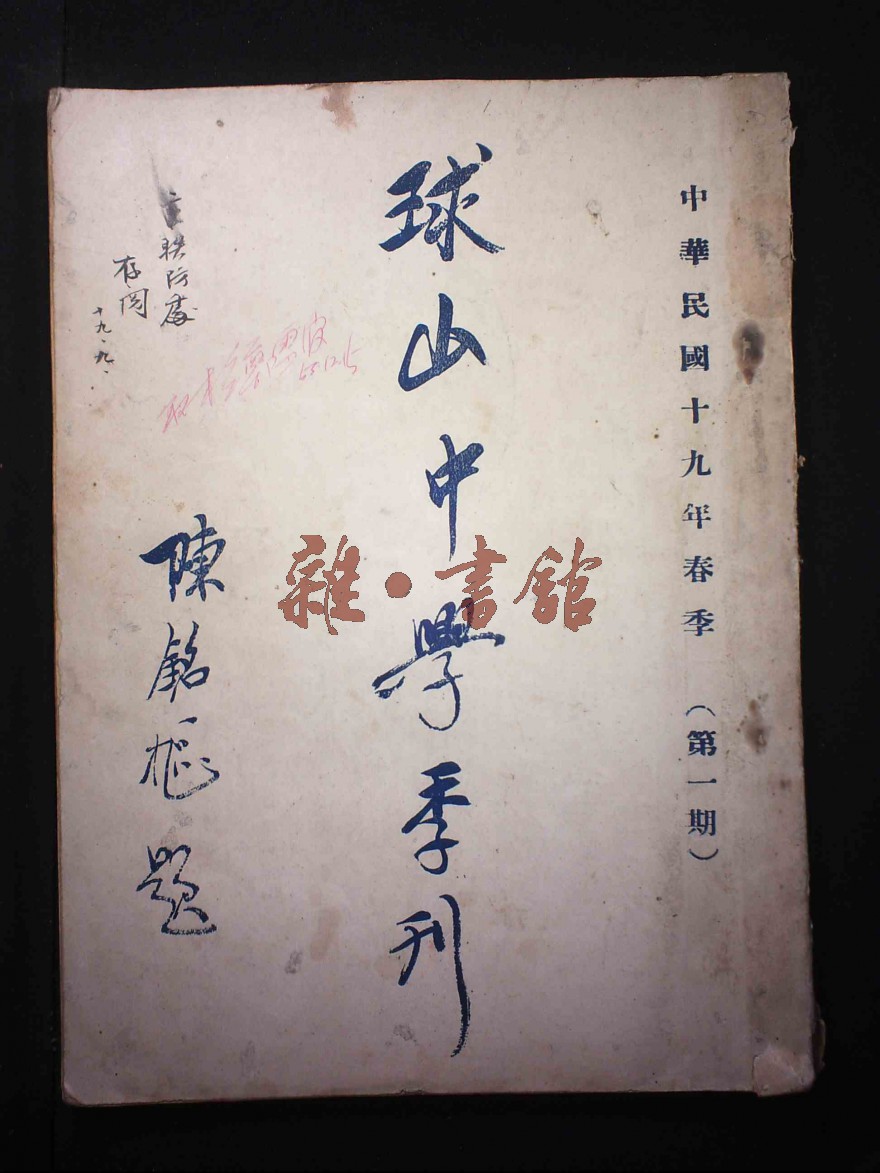 中華民國十九年春季 （第一期）
球山中學季刊
陳銘樞題
雜·書館
存閱
十九.九.